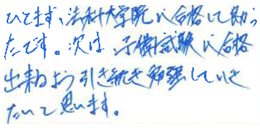 ひとまず、法科大学院に合格して助かっ
たです。次は、予備試験に合格
出来るよう引き続き勉強していき
たいと思います。